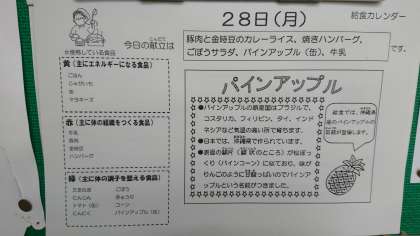 28日(月)
給食カレンダー
こんだて
今日の献立は
豚肉と金時豆のカレーライス、焼きハンバーグ、
ごぼうサラダ、パインアップル(缶)、牛乳
です。
※使用している食品
黄(主にエネルギーになる食品)
ごはん
じゃがいも
油
マヨネーズ
赤(主に体の組織をつくる食品)
牛乳
豚肉
金時豆
ハンバーグ
緑(主に体の調子を整える食品)
たまねぎ ごぼう
にんじん きゅうり
トマト(缶) コーン
にんにく パインアップル(缶)
パインアップル
●パインアップルの原産国はブラジルで、
コスタリカ、フィリピン、タイ、インド
ネシアなど気温の高い所で育ちます。
●日本では、沖縄県で作られています。
●表面の鱗片(鱗状のところ)が松ぼっ
くり(パインコーン)に似ており、味がり
んごのように甘酸っぱいのでパインア
ップルという名前がつきました。
給食では、沖縄県
缶詰が登場します。